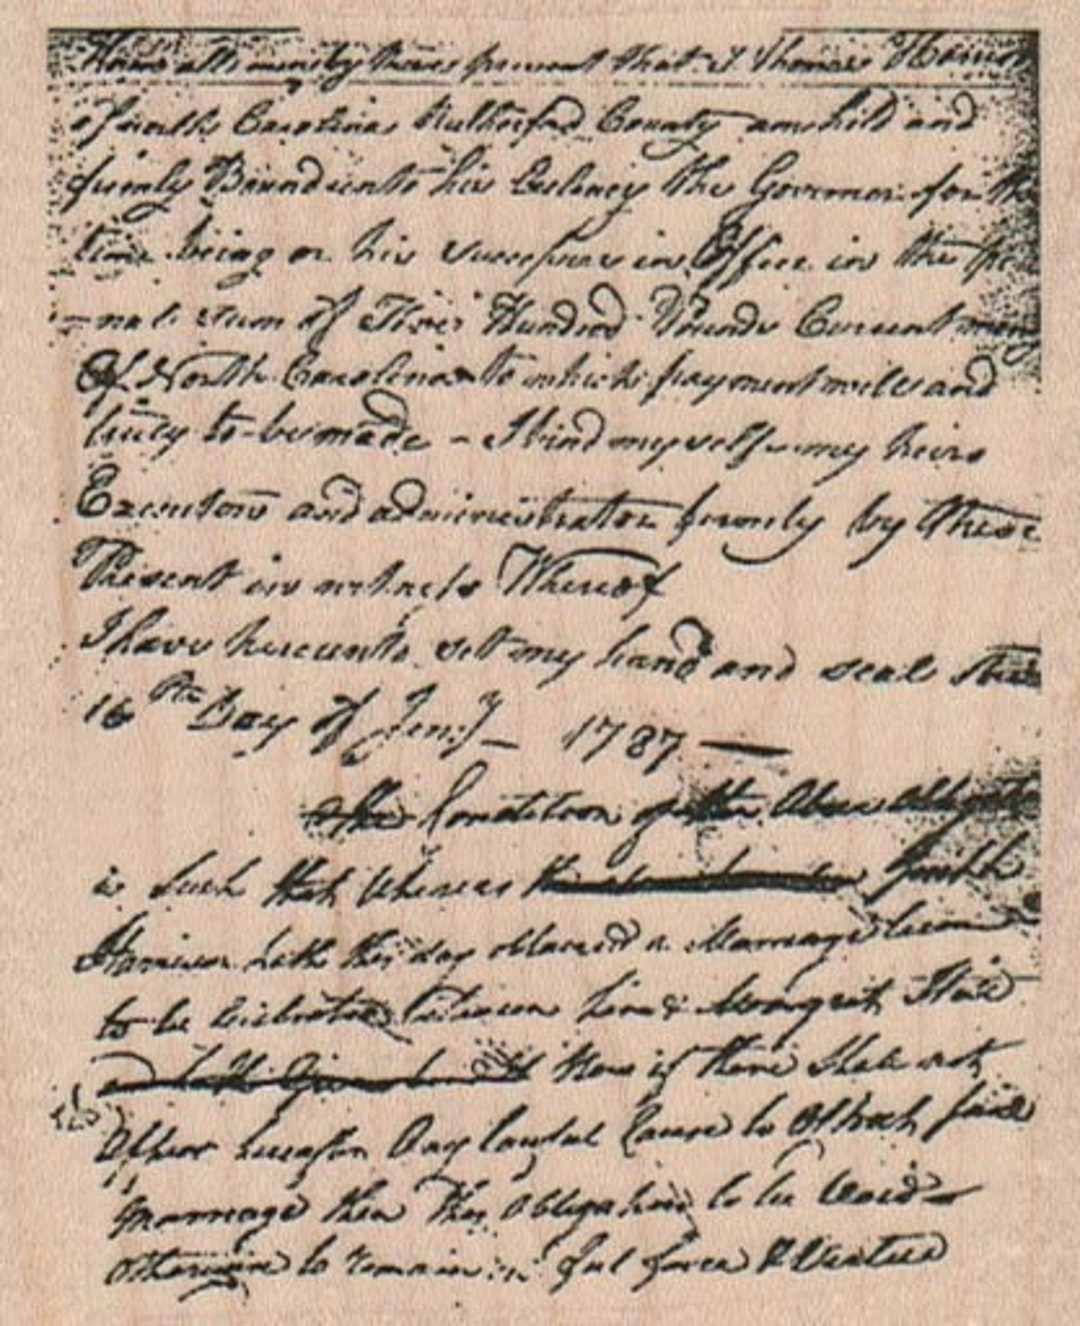 Know all men by these present that I Thomas Harrison
of North Carolina Rutherford County am held and
firmly Bound unto his the Governor for the
time being or his successors in Office in the pe
-nal sum of Five Hundred Pounds Current money
Of North Carolina to which payment well and
truly to be made - I bind myself my heirs
Executors and administrators firmly by these
Present in witness Whereof
I have hereunto set my hand and seal this
16th Day of 1787
the Condition of the Above
is Such that Whereas Joseph
hath this day obtained a Marriage
to be between him &
then if there shall not
hereafter Any lawful Cause to Obstruct said
marriage then this Obligation to be void
otherwise to remain in ful force & Vertue